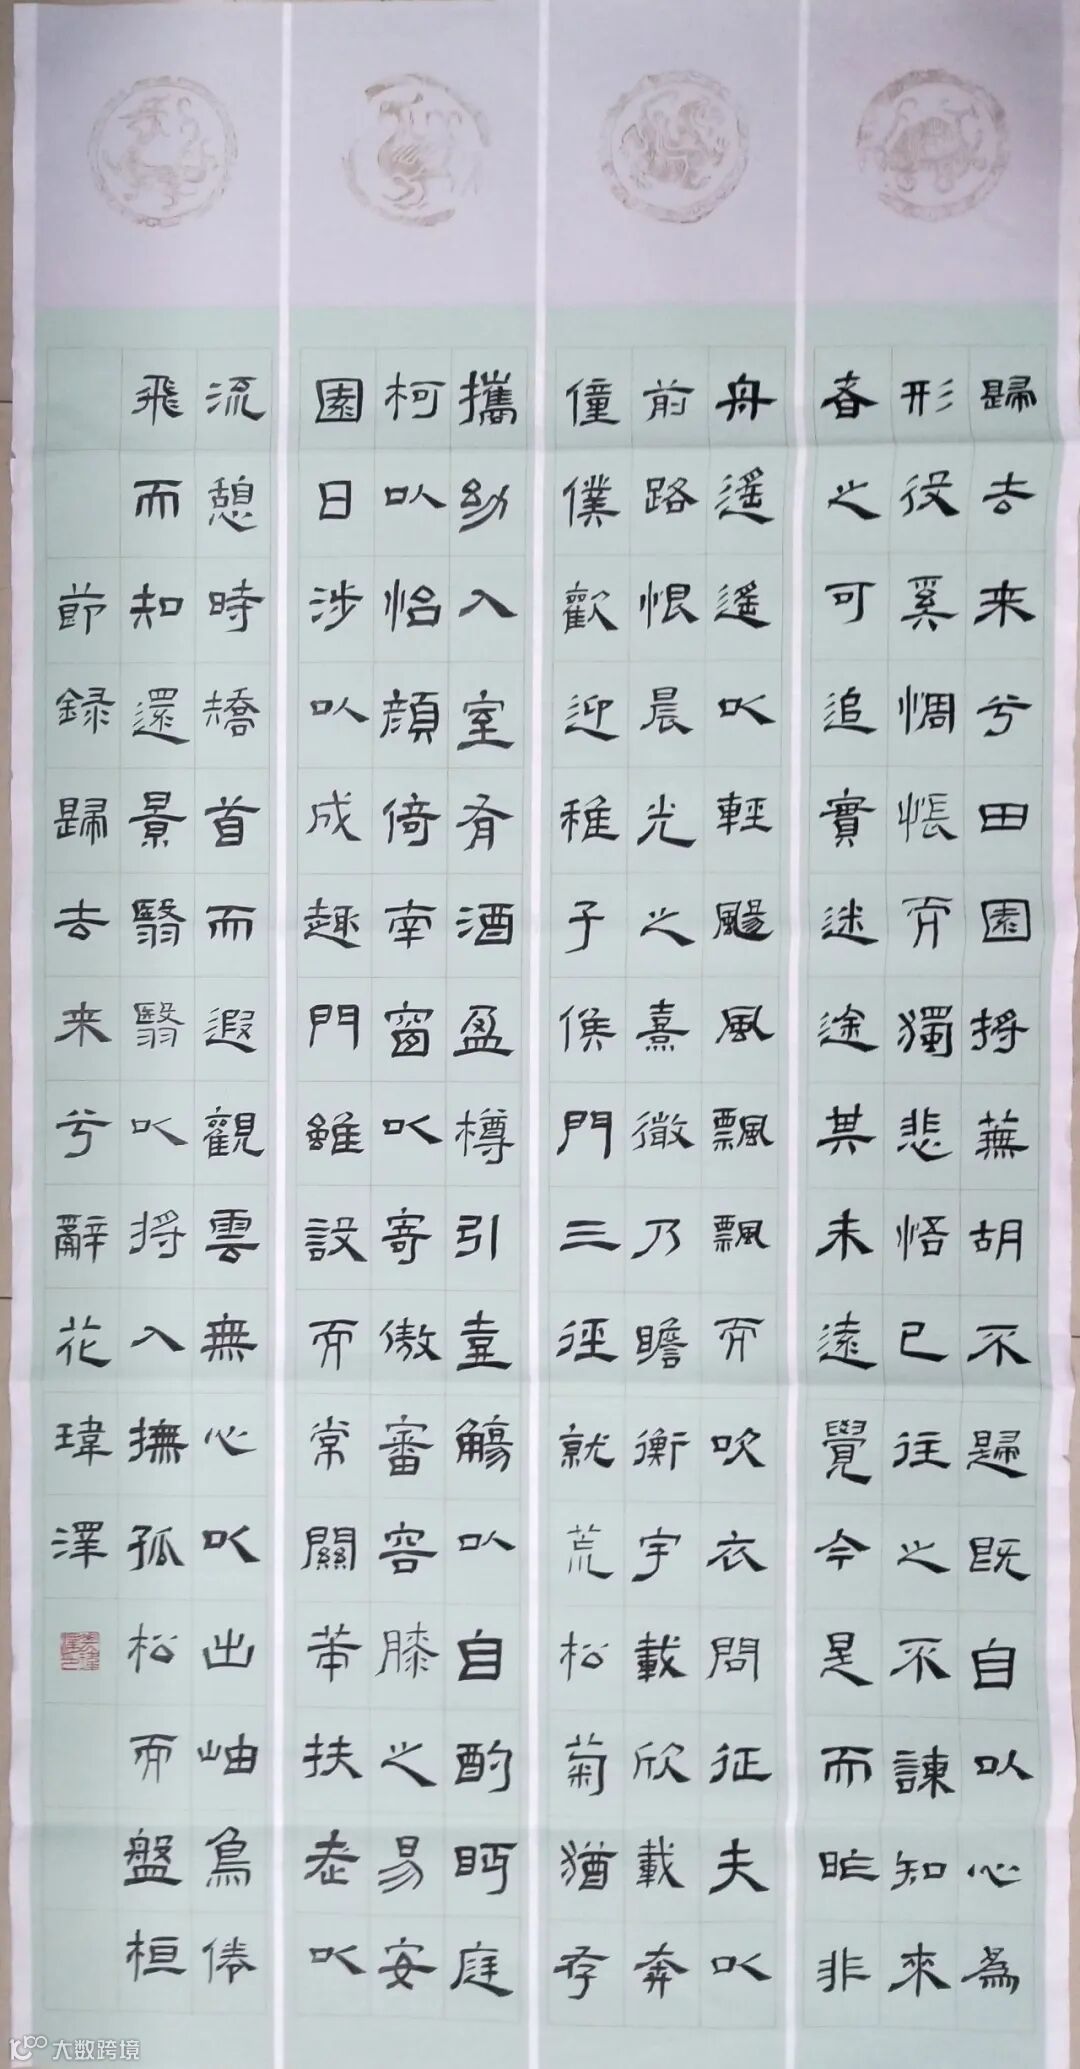 歸去来兮田園將蕪胡不歸既自以心為
形役奚惆悵而獨悲悟已往之不諫知來
者之可追實迷途其未遠覺今是而昨非
舟遥遥以輕颺風飄飄而吹衣問征夫以
前路恨晨光之熹微乃瞻衡宇載欣載奔
僮僕歡迎稚子候門三徑就荒松菊猶存
攜幼入室有酒盈樽引壺觴以自酌眄庭
柯以怡顔倚南窗以寄傲審容膝之易安
園日涉以成趣門雖設而常關策扶老以
流憩時矯首而遐觀雲無心以出岫鳥倦
飛而知還景翳翳以將入撫孤松而盤桓
節録歸去来兮辭花瑋澤
大数跨境